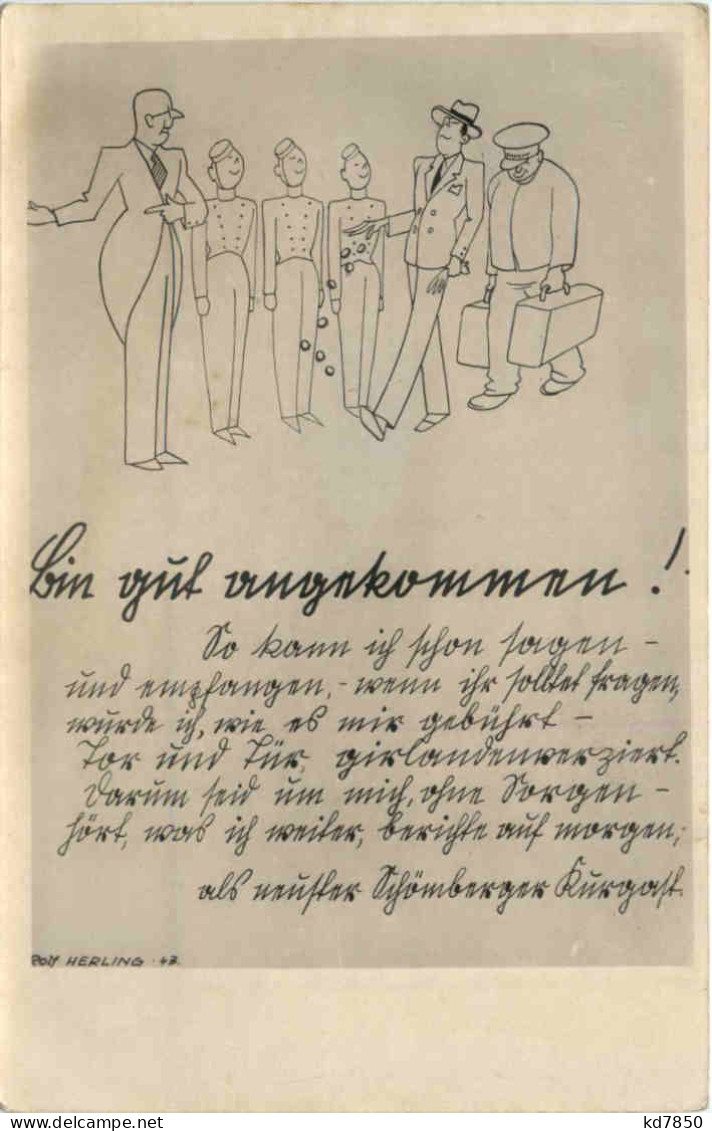 Bin gut angekommen!
So kann ich schon sagen -
und empfangen, - wenn ihr solltet fragen,
wurde ich, wie es mir gebührt -
Tor und Tür, girlandenverziert.
Darum seid um mich, ohne Sorgen -
hört, was ich weiter, berichte auf morgen,
als neuster Schömberger Kurgast.
ROLF HERLING · 43
kd7850